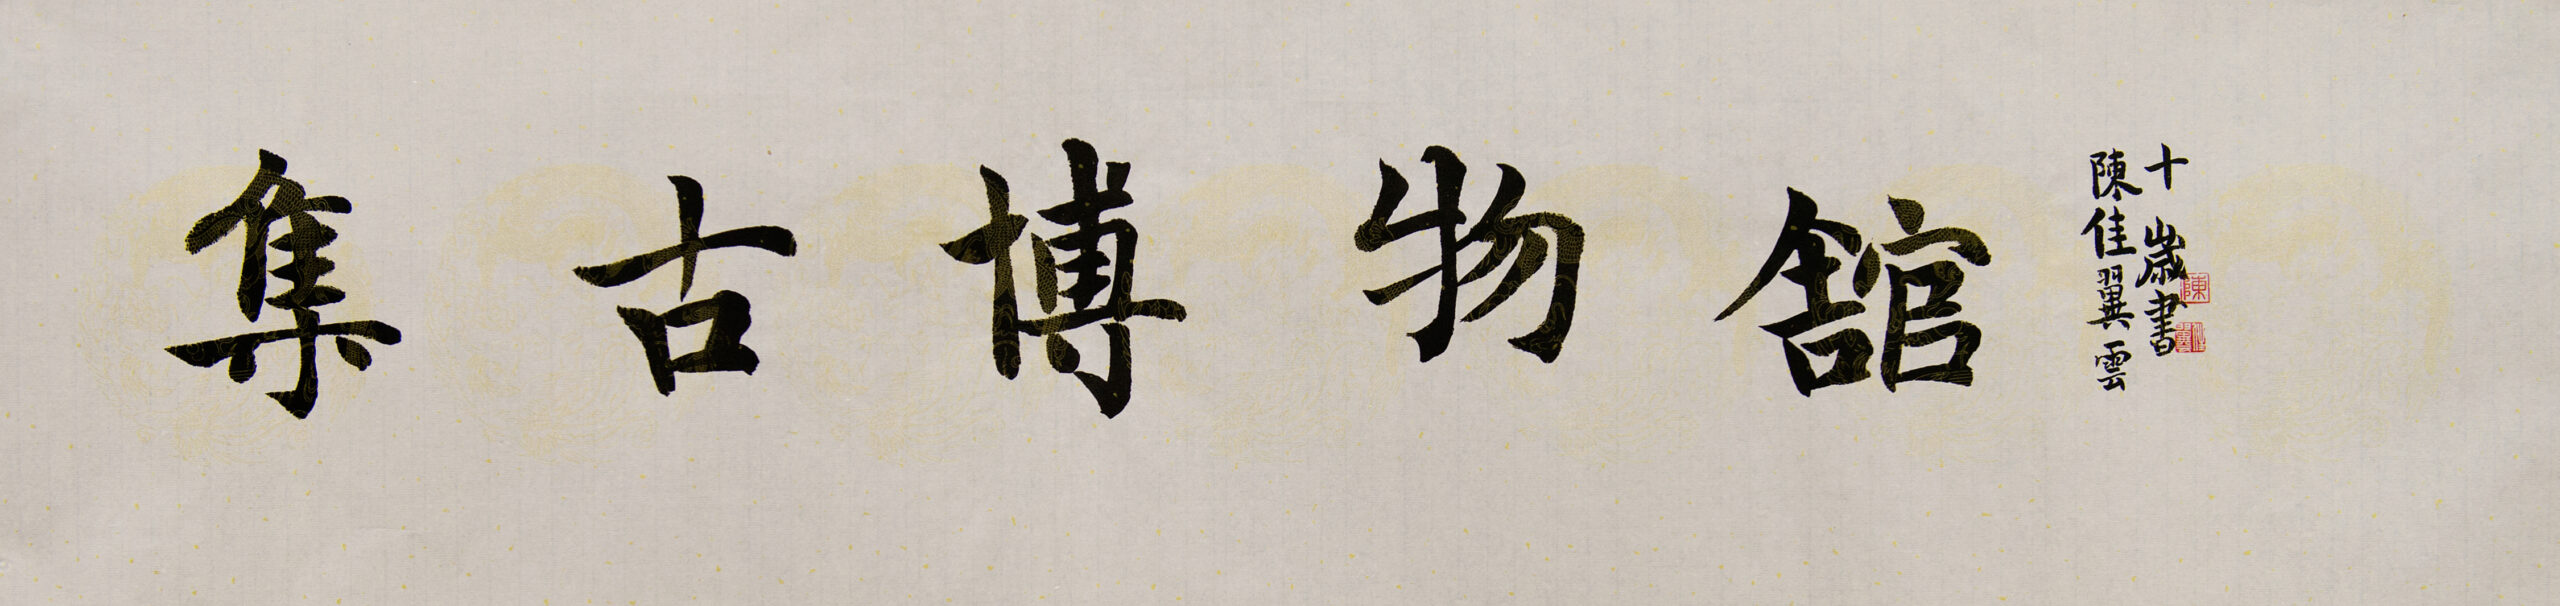 集古博物舘
十歲書
陳佳翼雲
陳